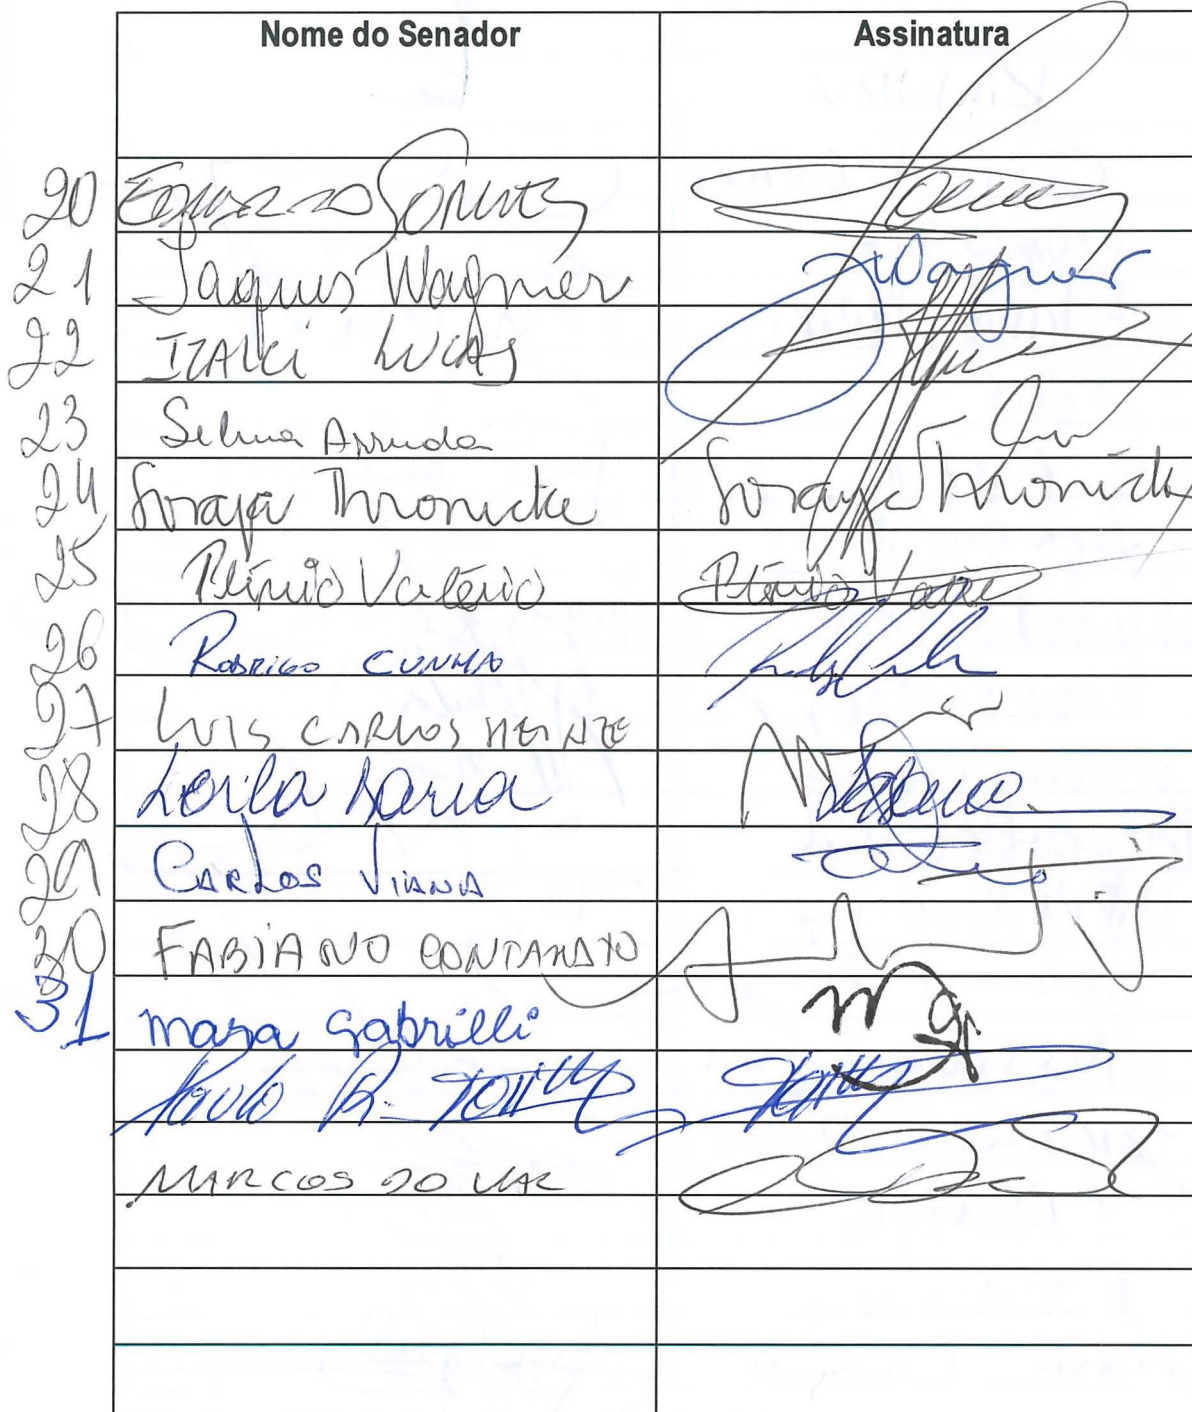 Nome do Senador Assinatura
20 EDUARDO GOMES Gomes
21 Jaques Wagner JWagner
22 IZALCI LUCAS
23 Selma Arruda
24 Soraya Thronicke Soraya Thronicke
25 Plínio Valério Plínio Valério
26 RODRIGO CUNHA
27 LUIS CARLOS HEINZE
28 Leila Barros
29 CARLOS VIANA
30 FABIANO CONTARATO
31 mara gabrilli mg
Paulo R.
MARCOS DO VAL